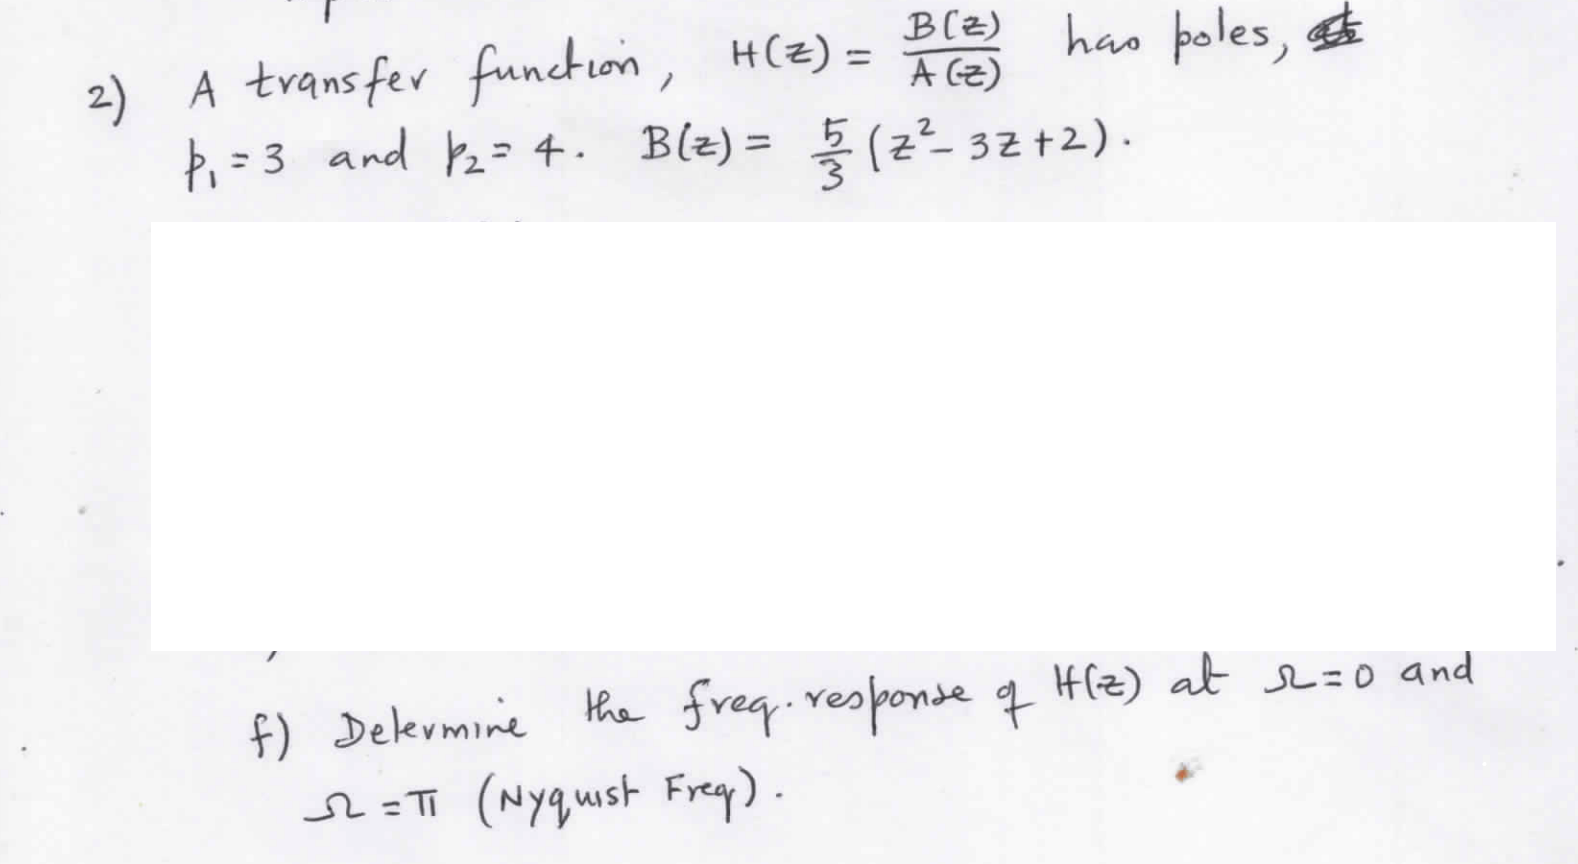 2) A transfer function, H(z) = B(z)/A(z) has poles,
p₁ = 3 and p₂ = 4. B(z) = 5/3 (z² - 3z + 2).
f) Determine the freq. response of H(z) at Ω = 0 and
Ω = π (Nyquist Freq).